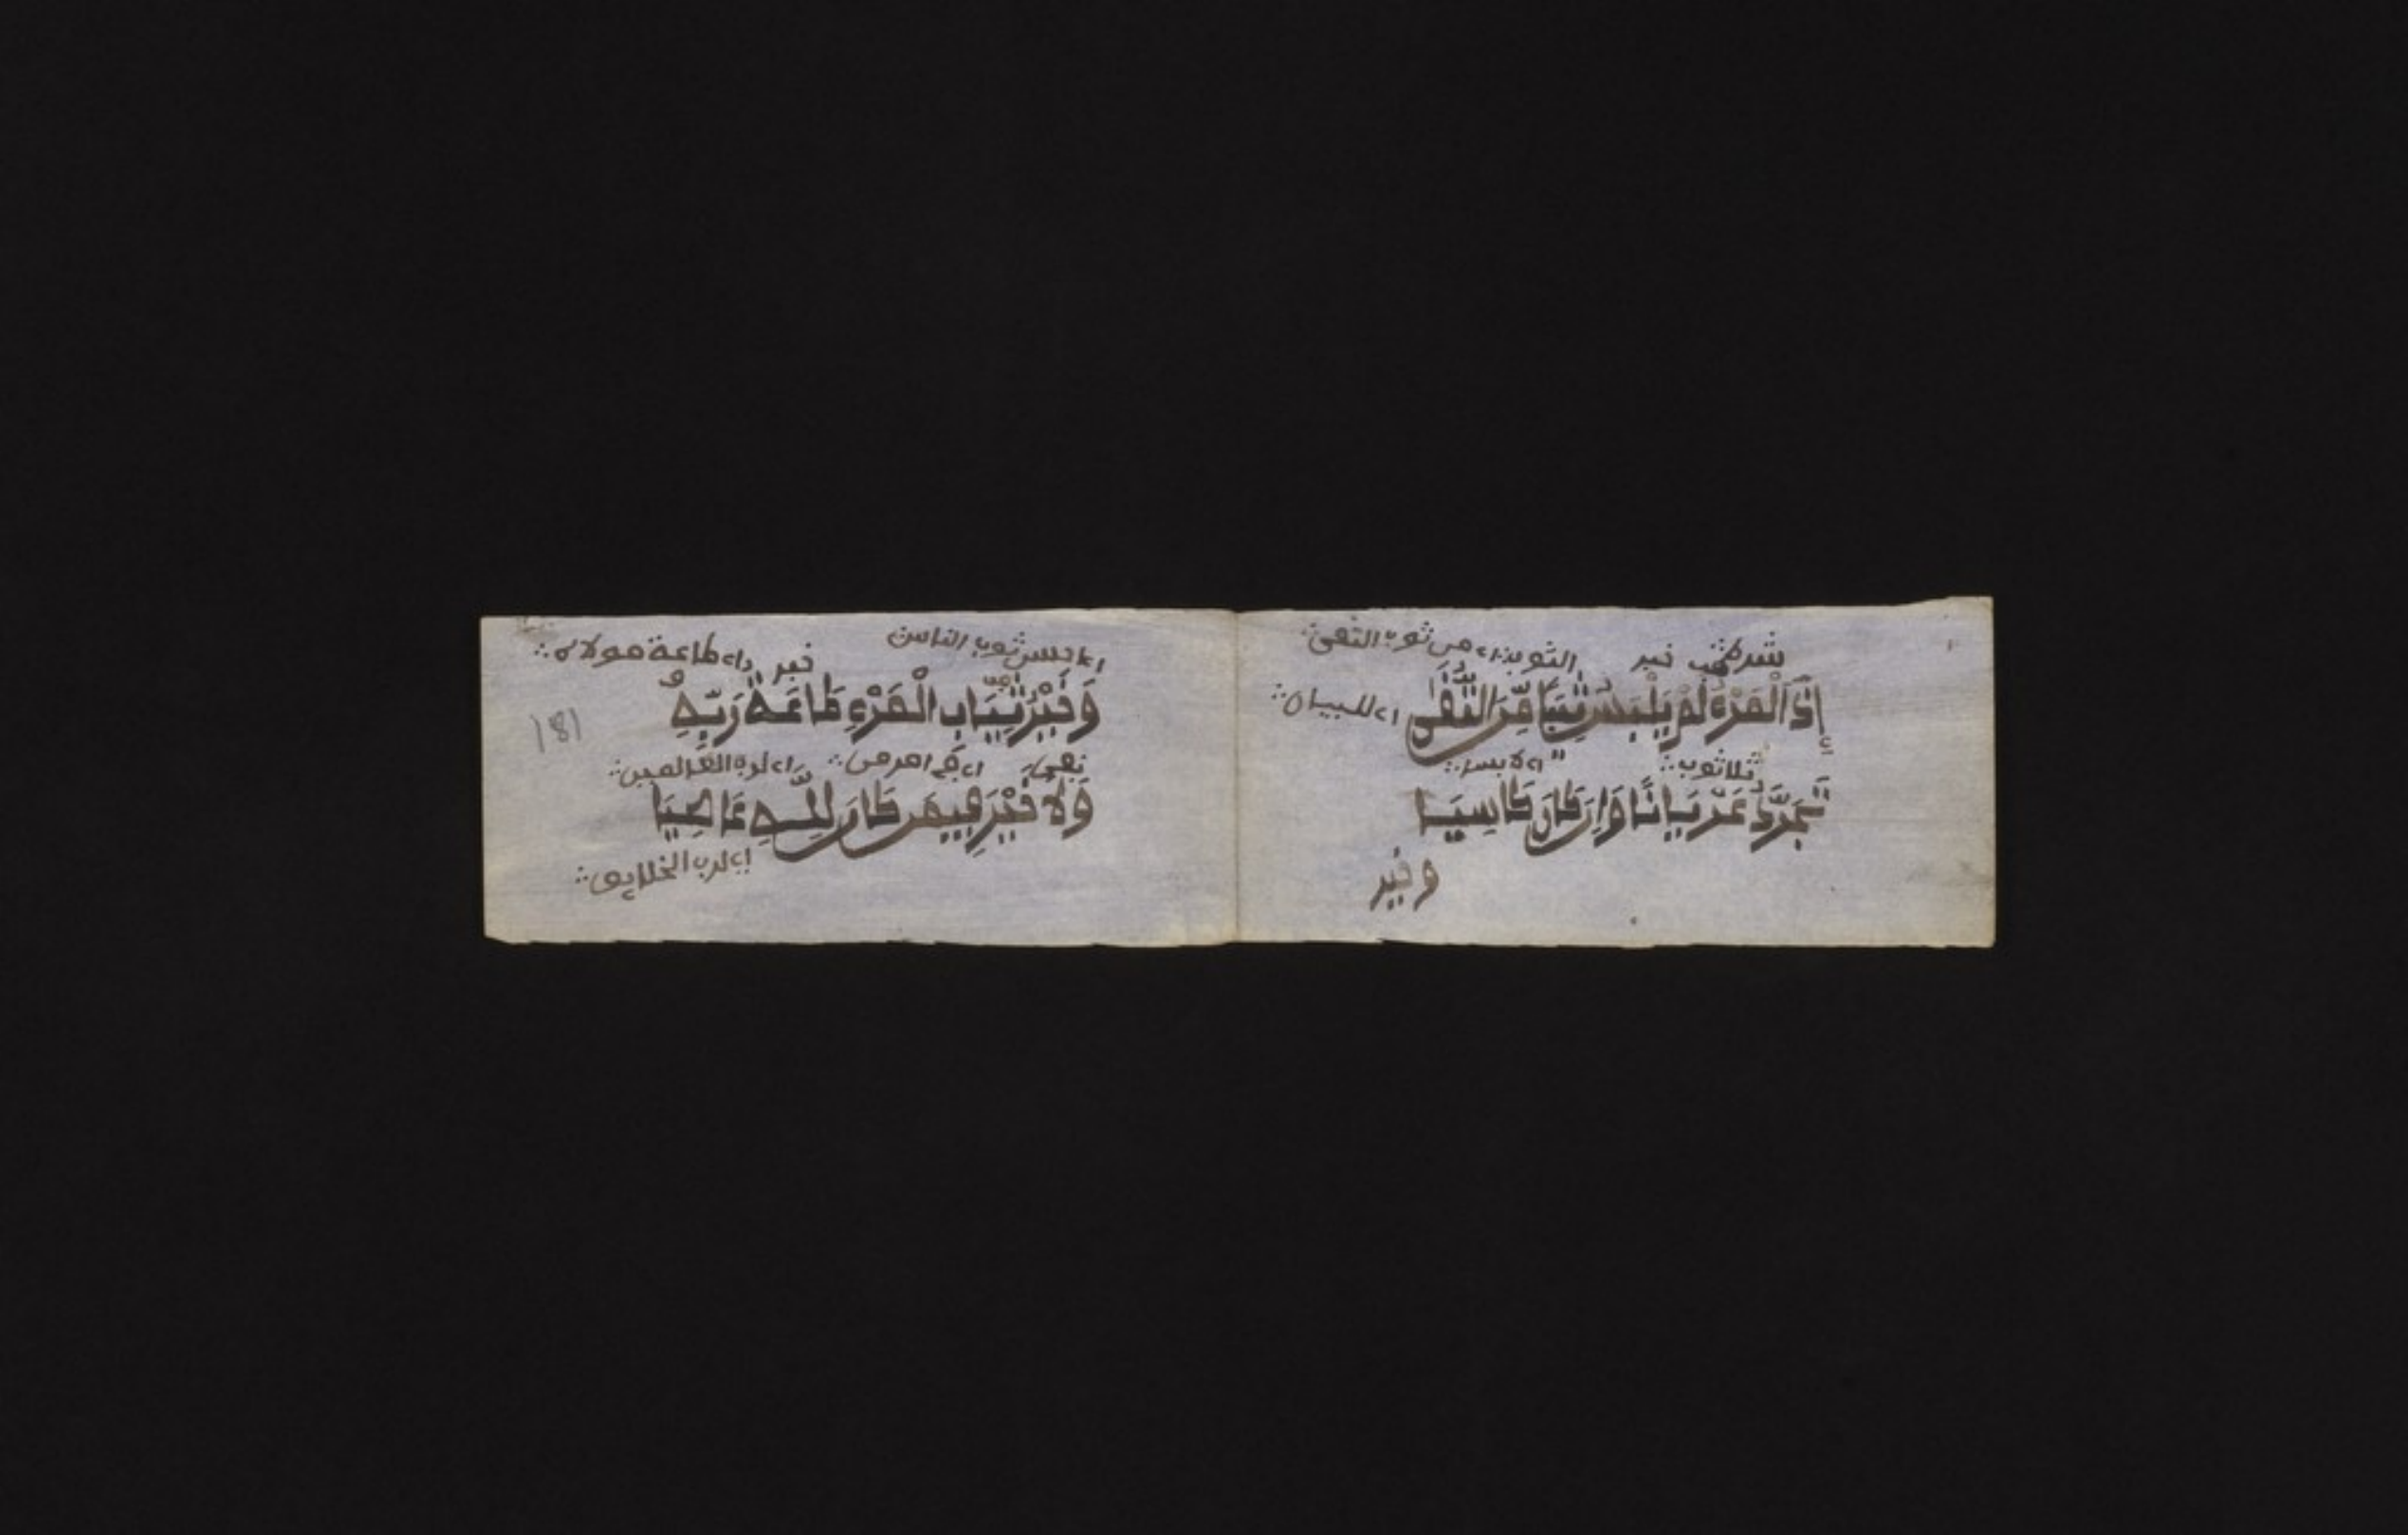 شرط خبر
الثوب اي من ثوب التقى
إِذَا الْمَرْءُ لَمْ يَلْبَسْ ثِيَابًا مِّنَ التُّقَى
اي للبيان
بلا ثوب
اي لابسا
تَجَرَّدَ عَرْيَانًا وَإِن كَانَ كَاسِيَا
وخير
اي احسن ثوب الناس
خبر اي طاعة مولاه
وَخَيْرُ ثِيَابِ الْمَرْءِ طَاعَةُ رَبِّهِ
181
نفي اي في امر من اي لرب العالمين
وَلَا خَيْرَ فِيمَن كَانَ لِلَّهِ عَاصِيَا
اي لرب الخلايق